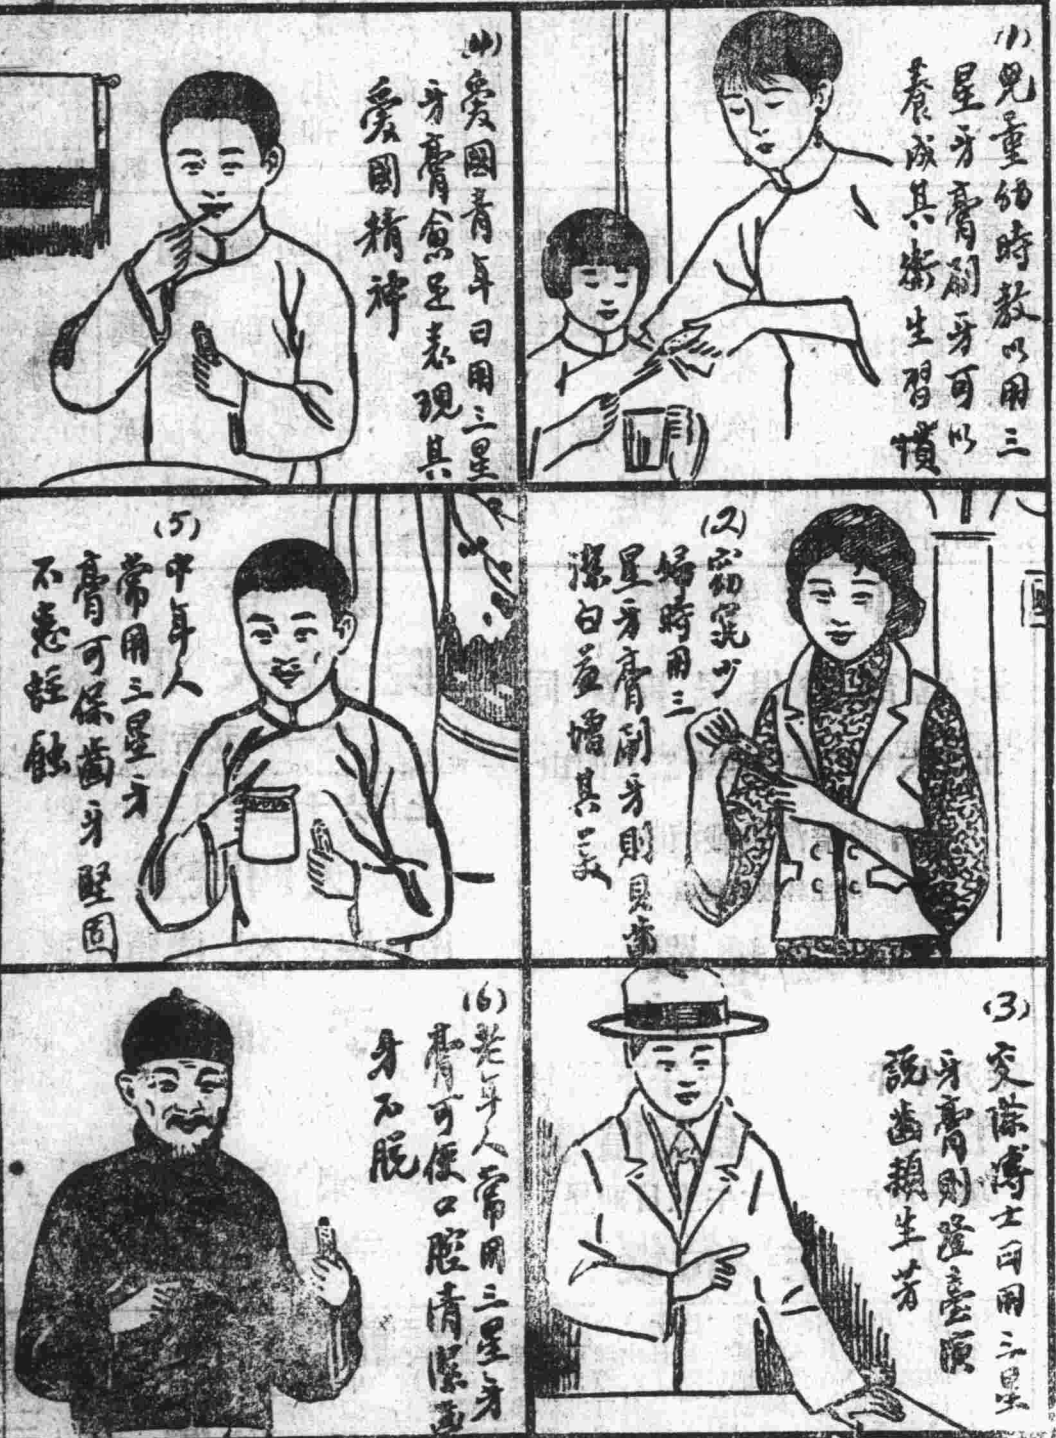 (1)兒童幼時教以用三
星牙膏刷牙可以
養成其衛生習慣
(2)窈窕少
婦時用三
星牙膏刷牙則見齒
潔白益增其美
(3)交際博士日用三星
牙膏則登臺演
說齒頰生芳
(4)愛國青年日用三星
牙膏愈足表現其
愛國精神
(5)中年人
常用三星牙
膏可保齒牙堅固
不患蛀蝕
(6)老年人常用三星牙
膏可使口腔清潔齒
牙不脫